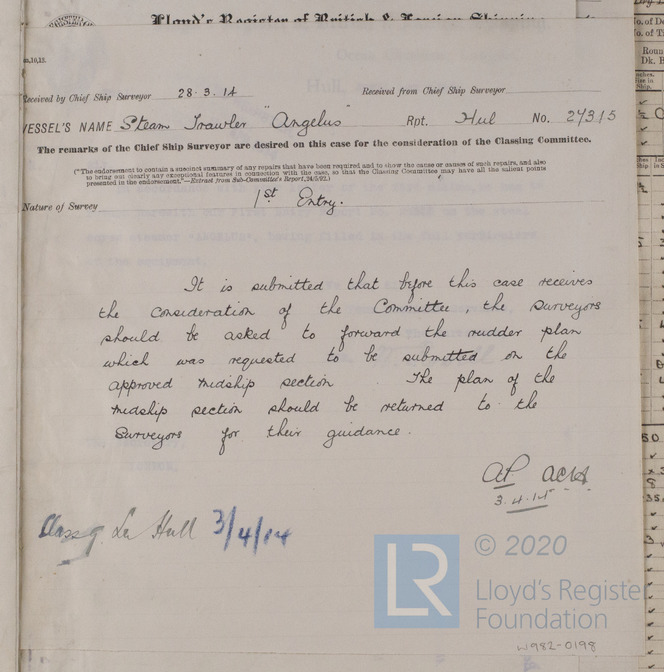 Lloyd's Register of British & Foreign Shipping
Received by Chief Ship Surveyor 28.3.14 Received from Chief Ship Surveyor
VESSEL'S NAME Steam Trawler "Angelus" Rpt. Hul No. 27315
The remarks of the Chief Ship Surveyor are desired on this case for the consideration of the Classing Committee.
("The endorsement to contain a succinct summary of any repairs that have been required and to show the cause or causes of such repairs, and also
to bring out clearly any exceptional features in connection with the case, so that the Classing Committee may have all the salient points
presented in the endorsement."—Extract from Sub-Committee's Report, 24/5/02.)
Nature of Survey 1st Entry.
It is submitted that before this case receives
the consideration of the Committee, the Surveyors
should be asked to forward the rudder plan
which was requested to be submitted on the
approved midship section. The plan of the
midship section should be returned to the
Surveyors for their guidance.
AP
3.4.14
Hull 3/4/14
© 2020
Lloyd's Registe
Foundation
W982-0198